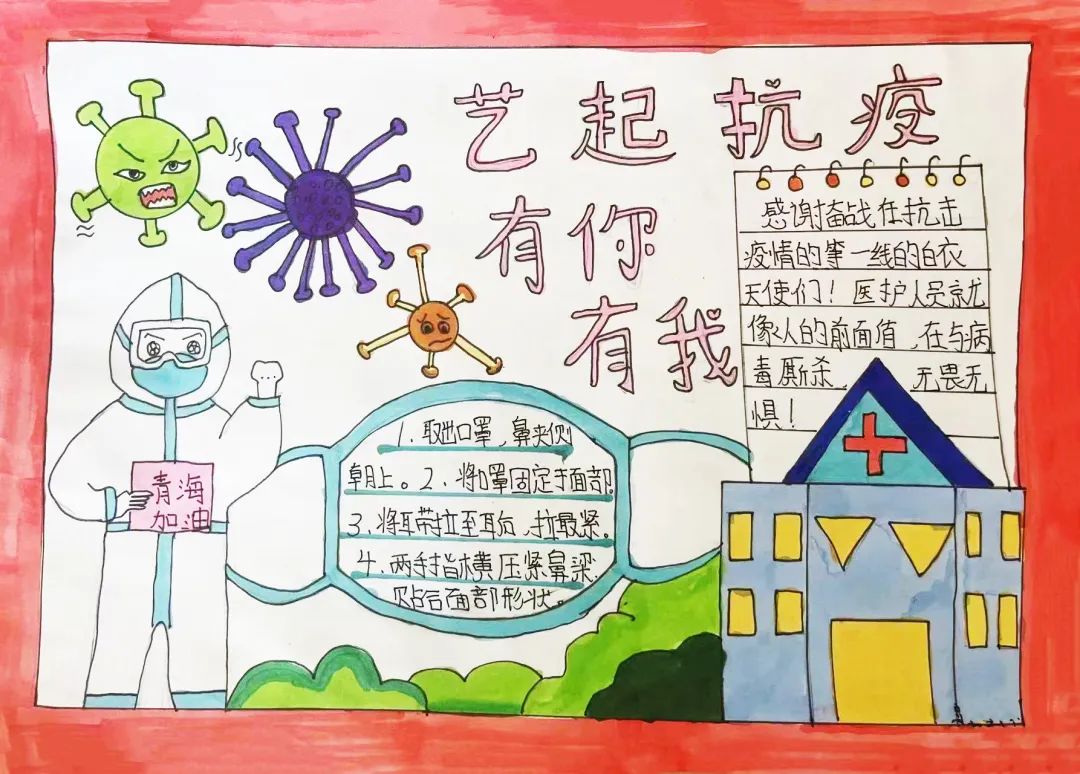 艺起抗疫
有你
有我
感谢奋战在抗击
疫情的第一线的白衣
天使们！医护人员就
像人的前面值，在与病
毒厮杀，无畏无
惧！
1、取出口罩，鼻夹侧
朝上。2、将口罩固定于面部
3、将耳带拉至耳后，拉最紧。
4、两手指横压紧鼻梁
贴合面部形状。
青海
加油